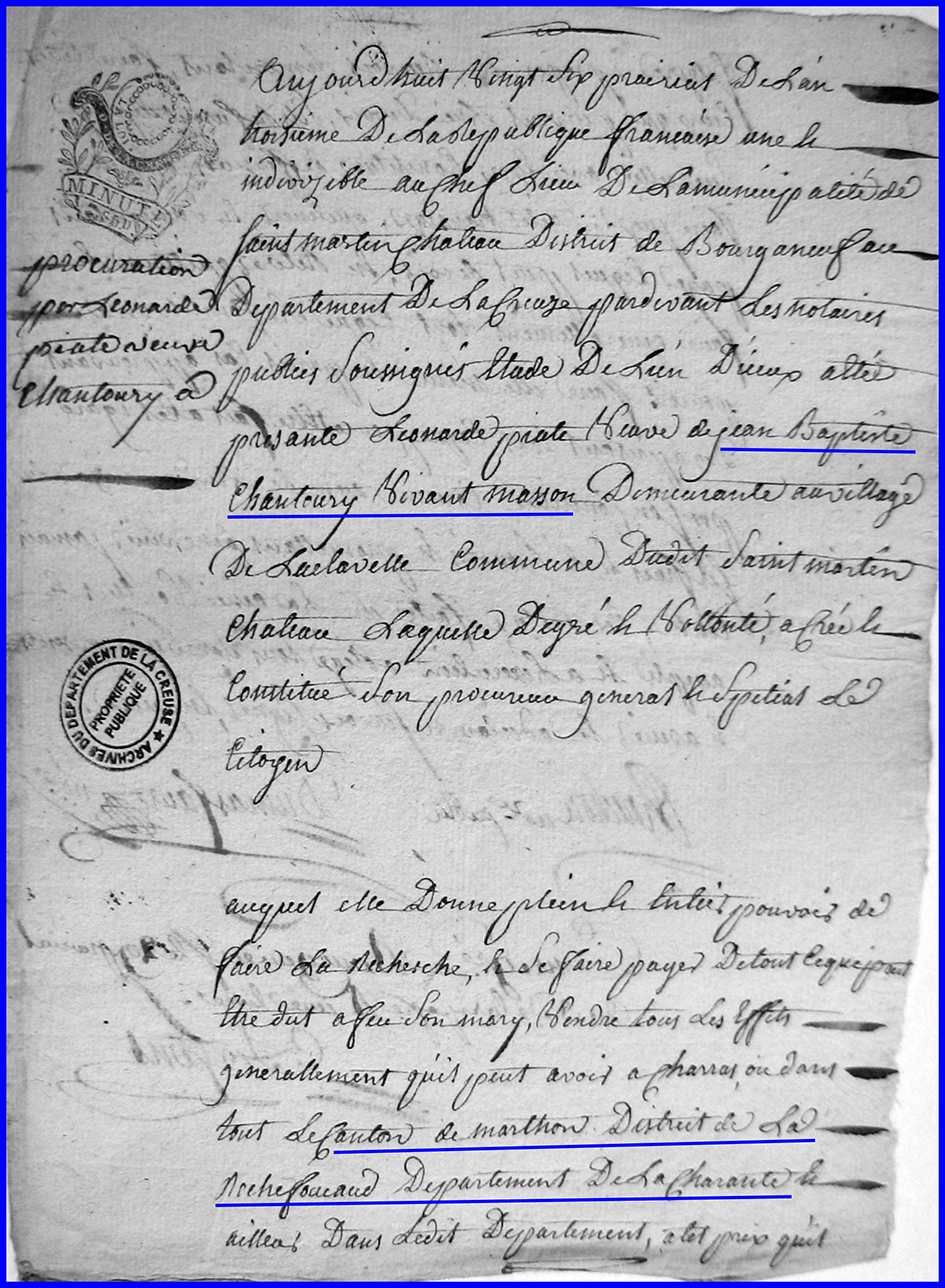 MINUTE
procuration
par Leonarde
piate veuve
Chantoury a
Aujourdhuit Vingt Six prairial De Lan
troisieme De La Republique francaise une &
indivizible au Chef Lieu De La municipalité de
Saint martin Chateau District de Bourganeuf au
Departement De La Creuze pardevant Les notaires
publics Soussignés
presante Leonarde piate Veuve de jean Baptiste
Chantoury Vivant masson Demeurante au village
De Laclavelle Commune Dudit Saint martin
Chateau Laquelle De gré & Vollonté, a Créé &
Constitué Son procureur general & Spetial Le
Citoyen
ARCHIVES DU DEPARTEMENT DE LA CREUSE ★
PROPRIETE
PUBLIQUE
auquel elle Donne plein & Entier pouvoir de
faire La Recherche, & Se faire payer De tout Ce qui peut
Etre dut a feu Son mary, Vendre tous Les Effets
generallement qu'il peut avoir a Charras, ou dans
tout Le Canton de marthon District de La
Rochefoucaud Departement De La Charante &
ailleas Dans Ledit Departement, a tel prix quil